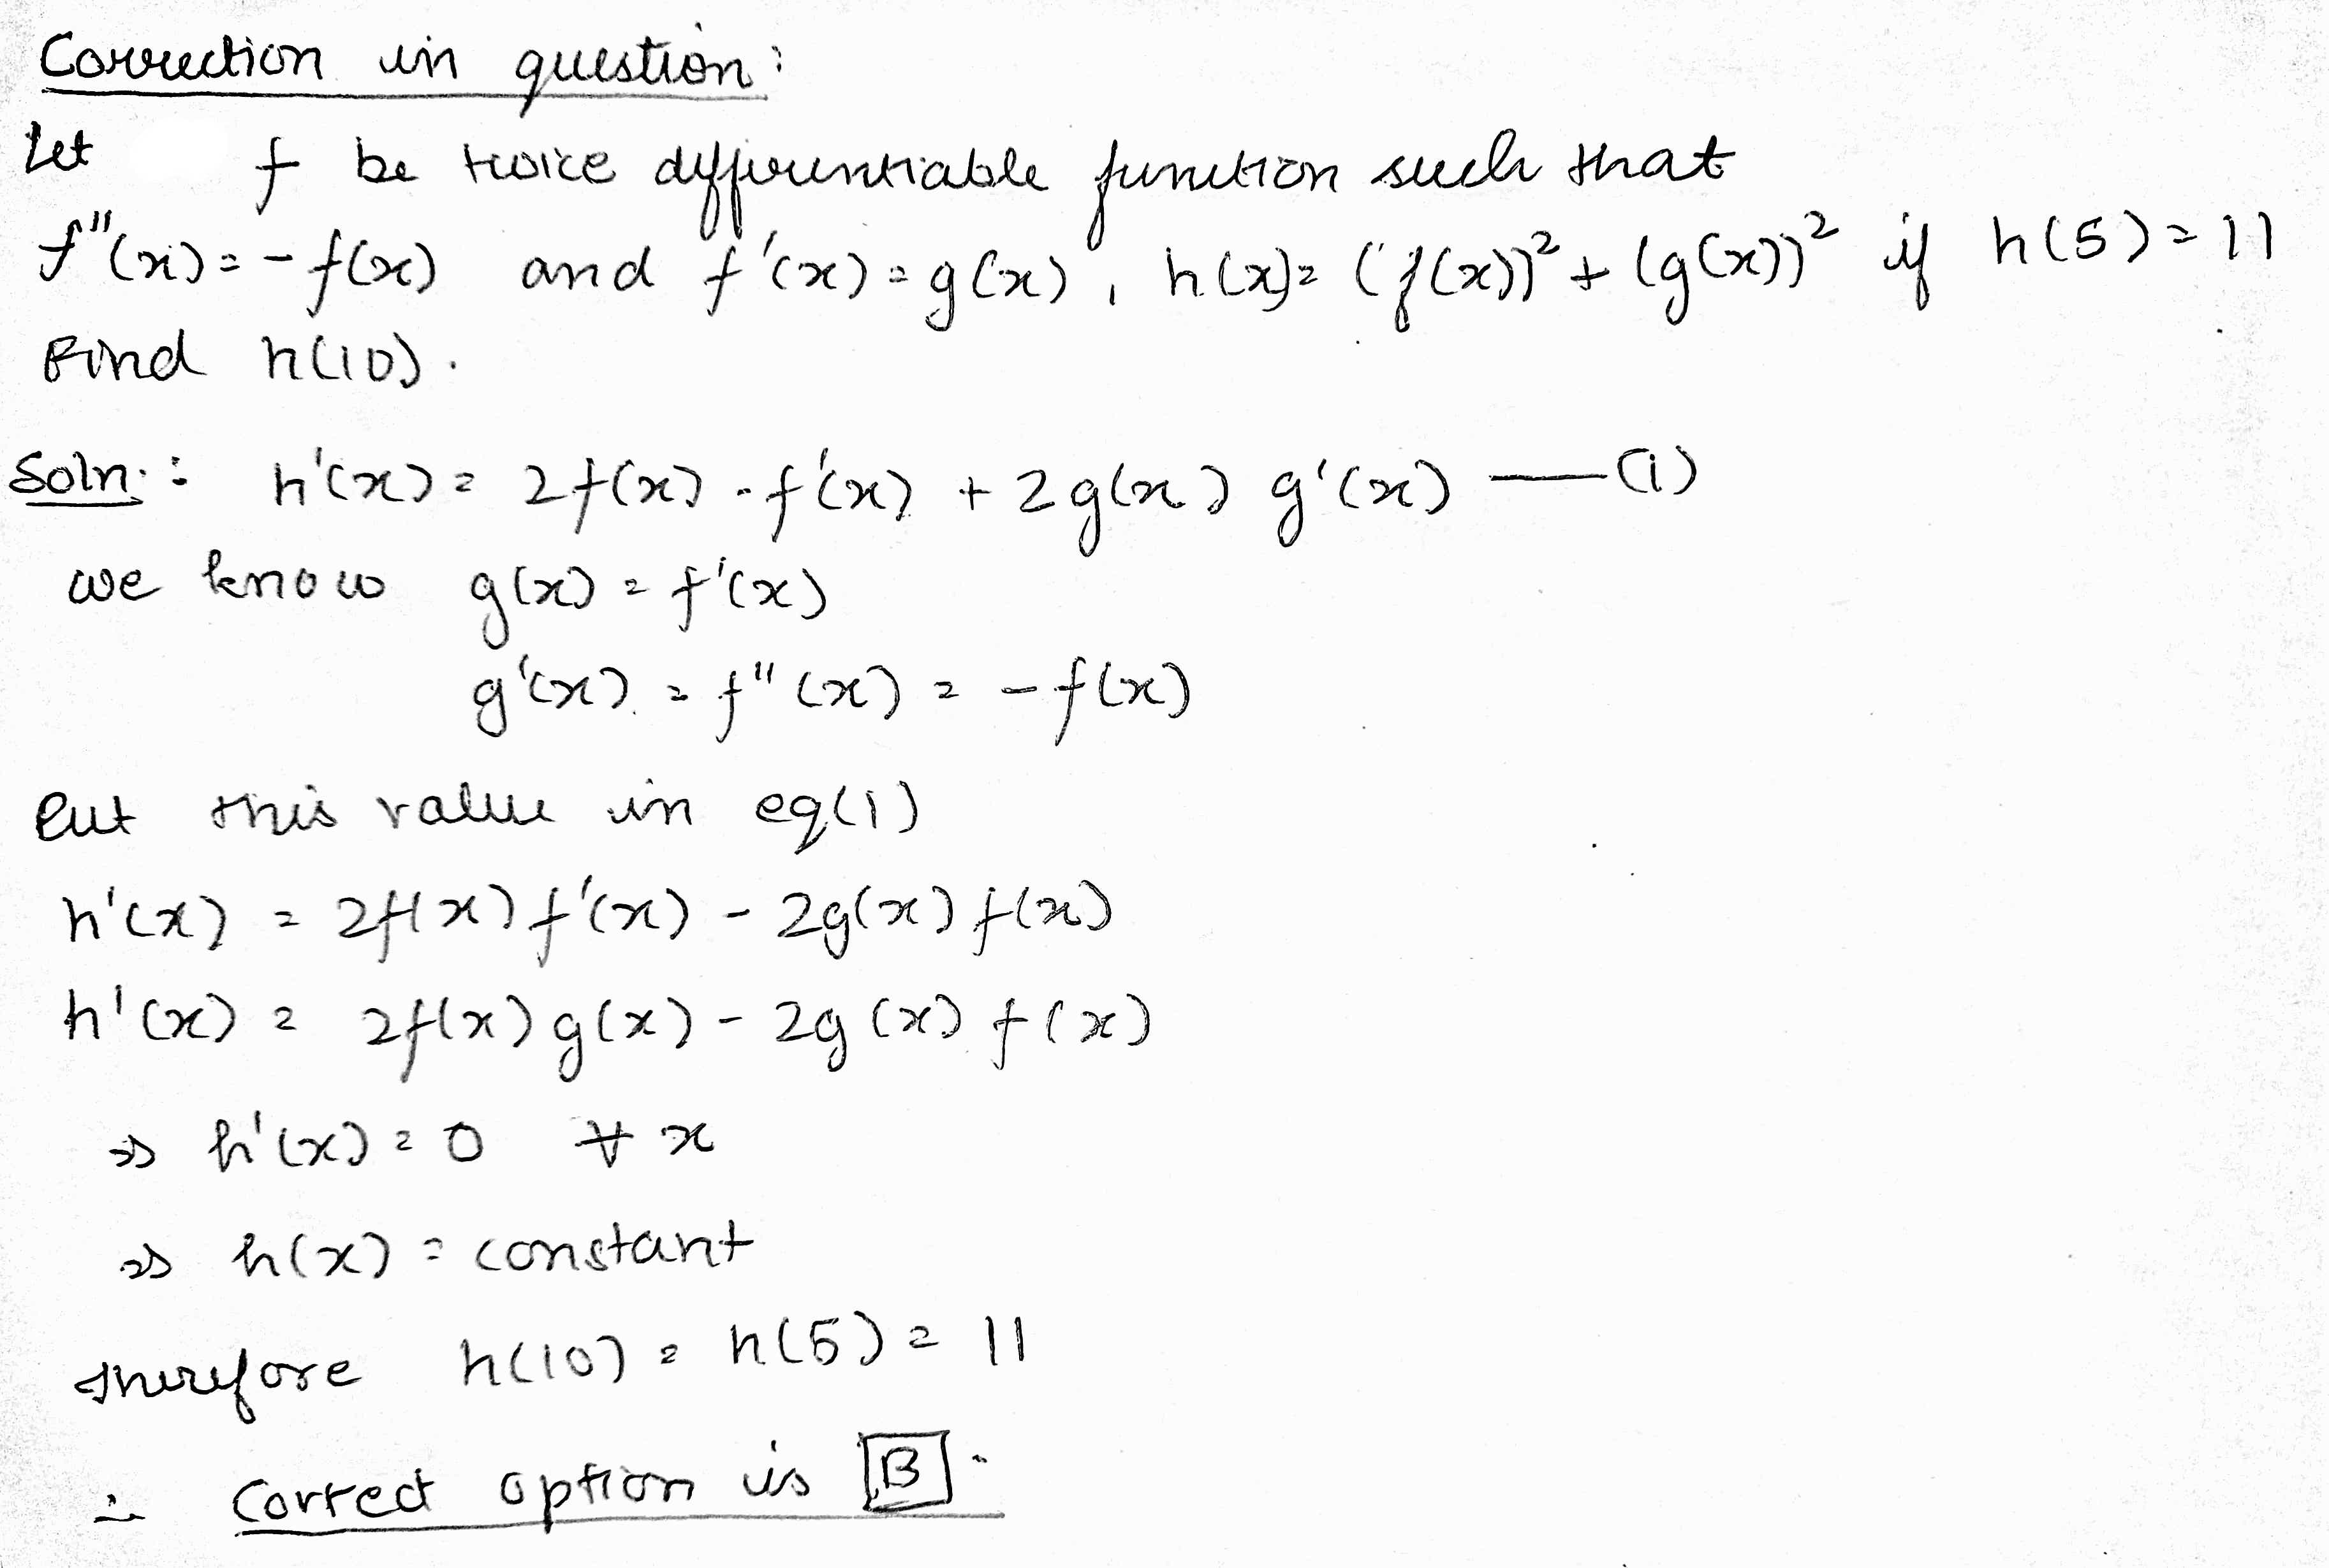 Correction in question:
Let f be twice differentiable function such that
f''(x) = - f(x) and f'(x) = g(x), h(x) = (f(x))² + (g(x))² if h(5) = 11
Find h(10).
Soln: h'(x) = 2f(x) . f'(x) + 2g(x) g'(x) —(1)
we know g(x) = f'(x)
g'(x) = f''(x) = - f(x)
Put this value in eq(1)
h'(x) = 2f(x) f'(x) - 2g(x) f(x)
h'(x) = 2f(x) g(x) - 2g(x) f(x)
⇒ h'(x) = 0 ∀ x
⇒ h(x) = constant
Therefore h(10) = h(5) = 11
∴ Correct option is B.